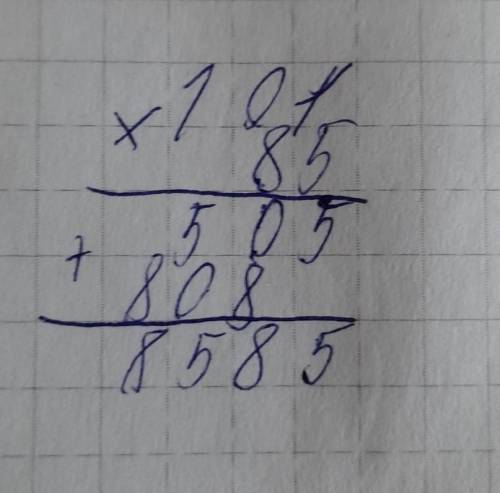 × 1 0 1
8 5
5 0 5
+
8 0 8
8 5 8 5